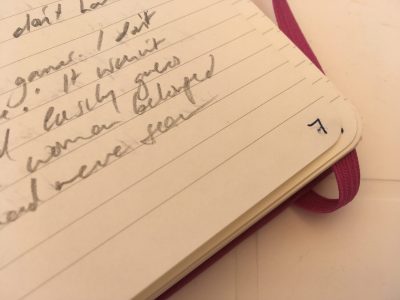 don't
games. I don't
. It wasn't
easily guess
woman belonged
had never seen
7